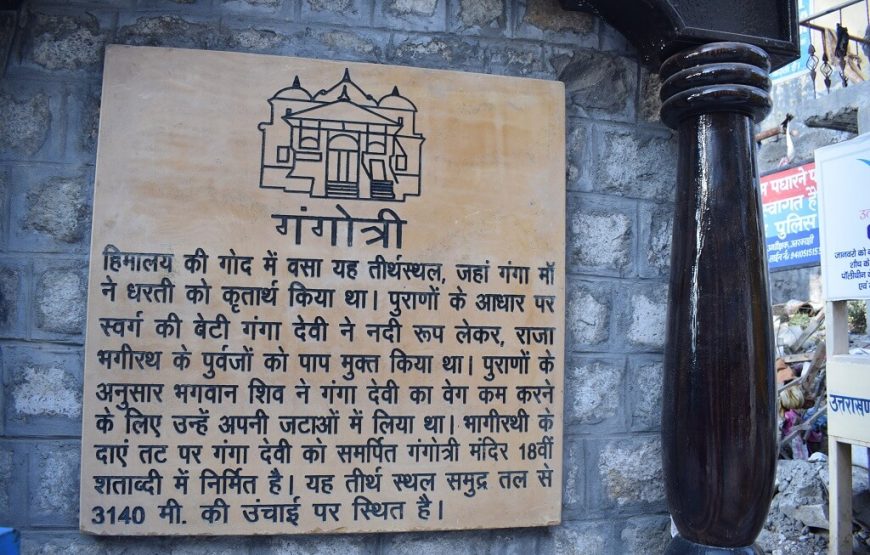 गंगोत्री
हिमालय की गोद में वसा यह तीर्थस्थल, जहां गंगा माँ
ने धरती को कृतार्थ किया था। पुराणों के आधार पर
स्वर्ग की बेटी गंगा देवी ने नदी रूप लेकर, राजा
भगीरथ के पुर्वजों को पाप मुक्त किया था। पुराणों के
अनुसार भगवान शिव ने गंगा देवी का वेग कम करने
के लिए उन्हें अपनी जटाओं में लिया था। भागीरथी के
दाएं तट पर गंगा देवी को समर्पित गंगोत्री मंदिर 18वीं
शताब्दी में निर्मित है। यह तीर्थ स्थल समुद्र तल से
3140 मी. की उंचाई पर स्थित है।
पधारने
स्वागत है
पुलिस
जानवरो को